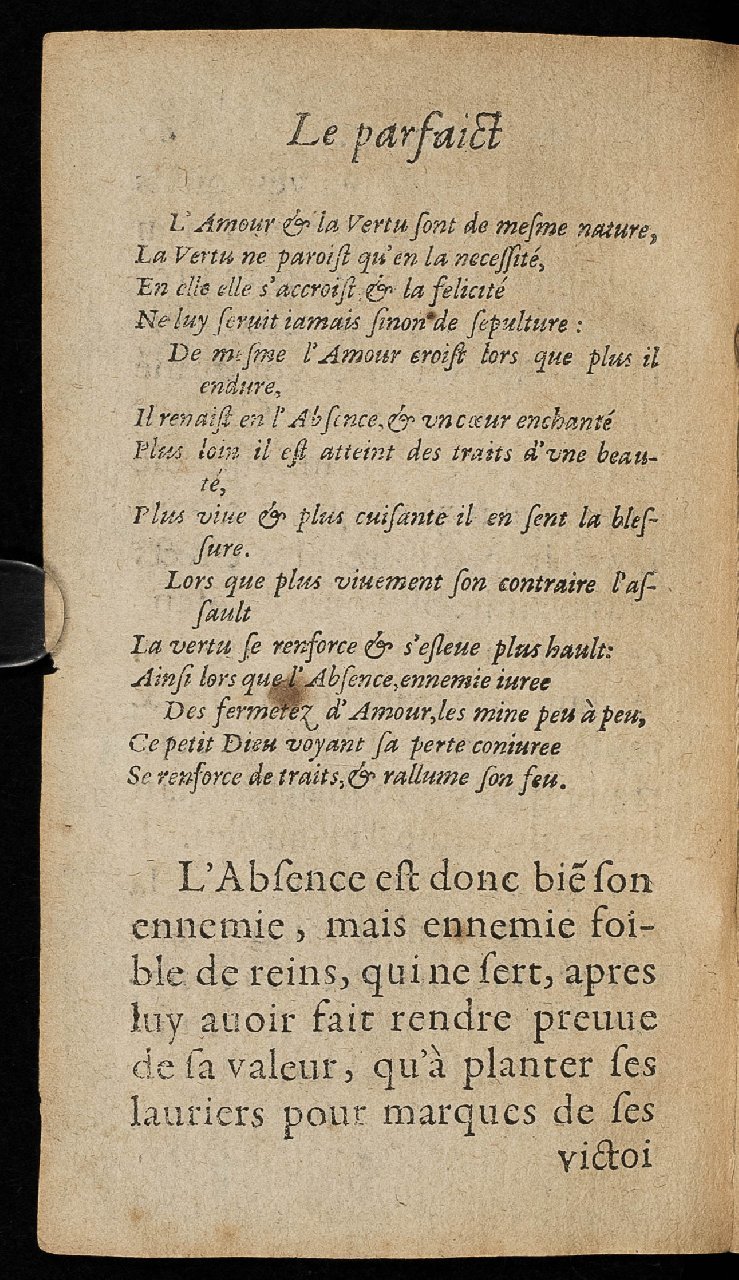 Le parfaict
L'Amour & la Vertu ſont de meſme nature,
La Vertu ne paroiſt qu'en la neceſſité,
En elle elle s'accroiſt & la felicité
Ne luy ſeruit iamais ſinon de ſepulture :
De meſme l'Amour croiſt lors que plus il
endure,
Il renaiſt en l'Abſence, & vn cœur enchanté
Plus loin il eſt atteint des traits d'vne beau-
té,
Plus viue & plus cuiſante il en ſent la bleſ-
ſure.
Lors que plus viuement ſon contraire l'aſ-
ſault
La vertu ſe renforce & s'eſleue plus hault:
Ainſi lors que l'Abſence, ennemie iuree
Des fermetez d'Amour, les mine peu à peu,
Ce petit Dieu voyant ſa perte coniuree
Se renforce de traits, & rallume ſon feu.
L'Abſence eſt donc biẽ ſon
ennemie, mais ennemie foi-
ble de reins, qui ne ſert, apres
luy auoir fait rendre preuue
de ſa valeur, qu'à planter ſes
lauriers pour marques de ſes
victoi